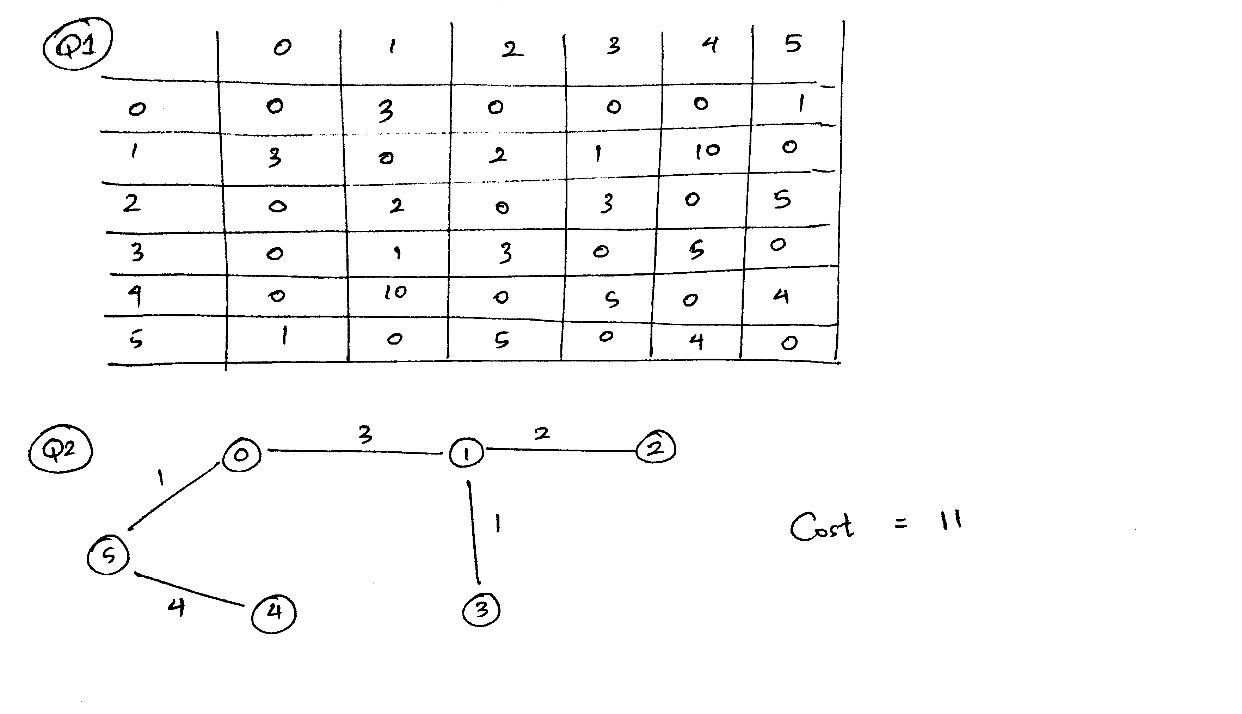 Q1 0 1 2 3 4 5
0 0 3 0 0 0 1
1 3 0 2 1 10 0
2 0 2 0 3 0 5
3 0 1 3 0 5 0
4 0 10 0 5 0 4
5 1 0 5 0 4 0
Q2 0 3 1 2 2
1
5 1 Cost = 11
4 4 3